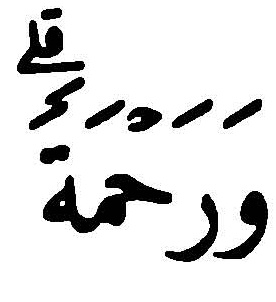 وَرَحْمَةٌ ۗ